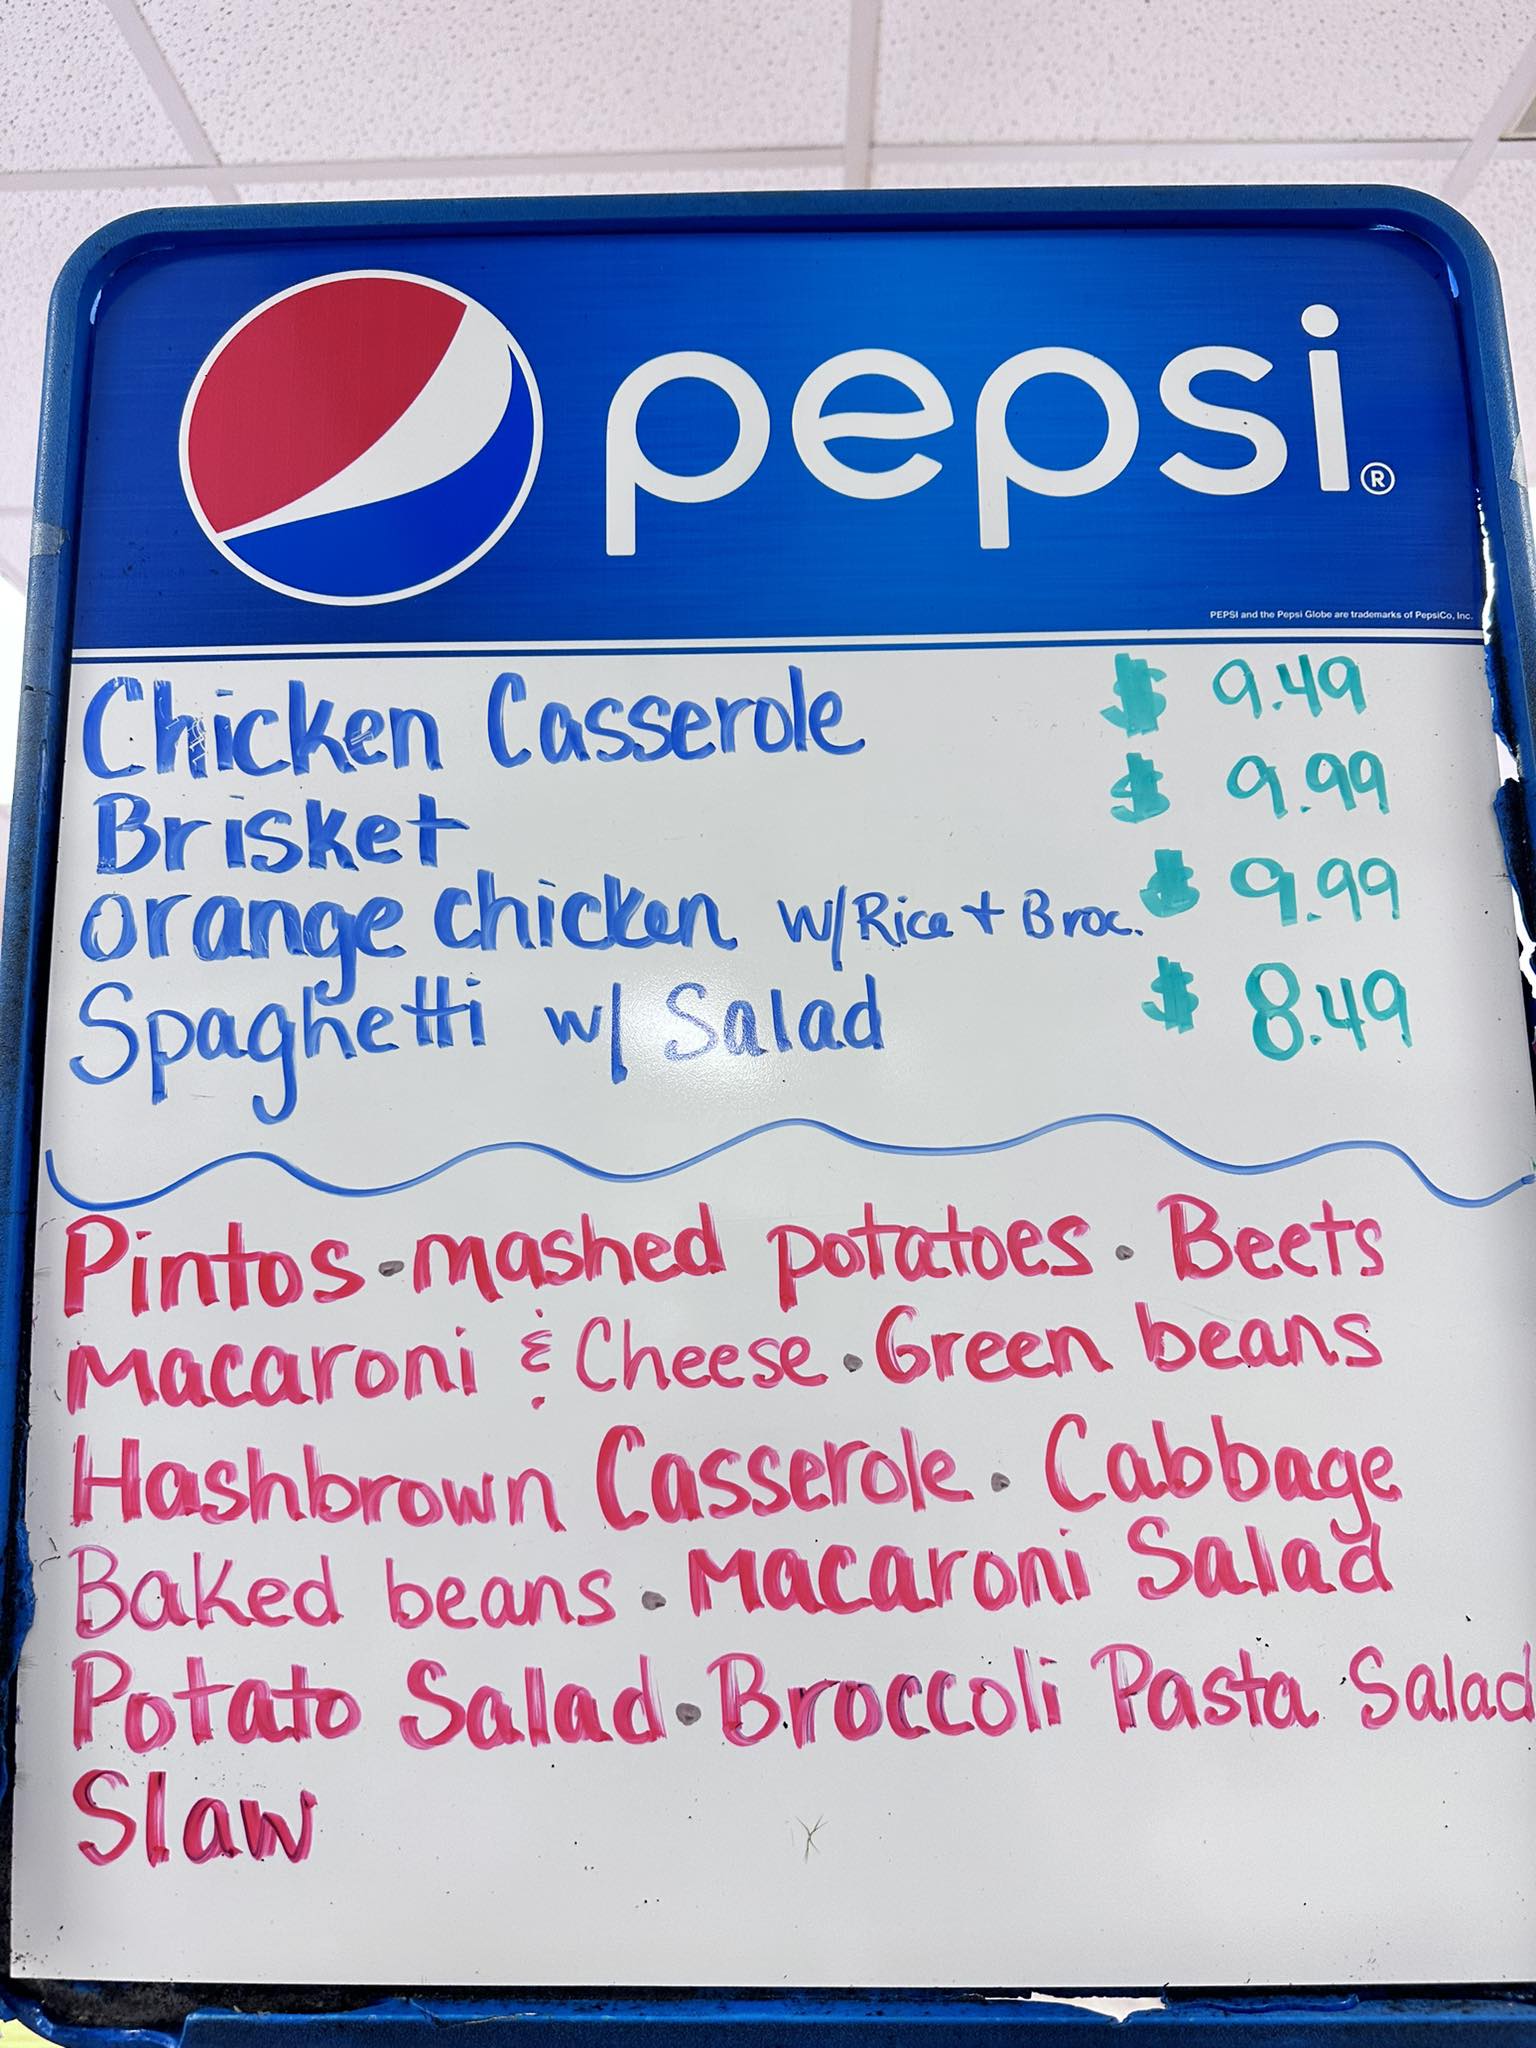 pepsi®
PEPSI and the Pepsi Globe are trademarks of PepsiCo, Inc.
Chicken Casserole $ 9.49
Brisket $ 9.99
orange chicken w/Rice + Broc. $ 9.99
Spaghetti w/ Salad $ 8.49
Pintos • mashed potatoes • Beets
Macaroni & Cheese • Green beans
Hashbrown Casserole • Cabbage
Baked beans • Macaroni Salad
Potato Salad • Broccoli Pasta Salad
Slaw